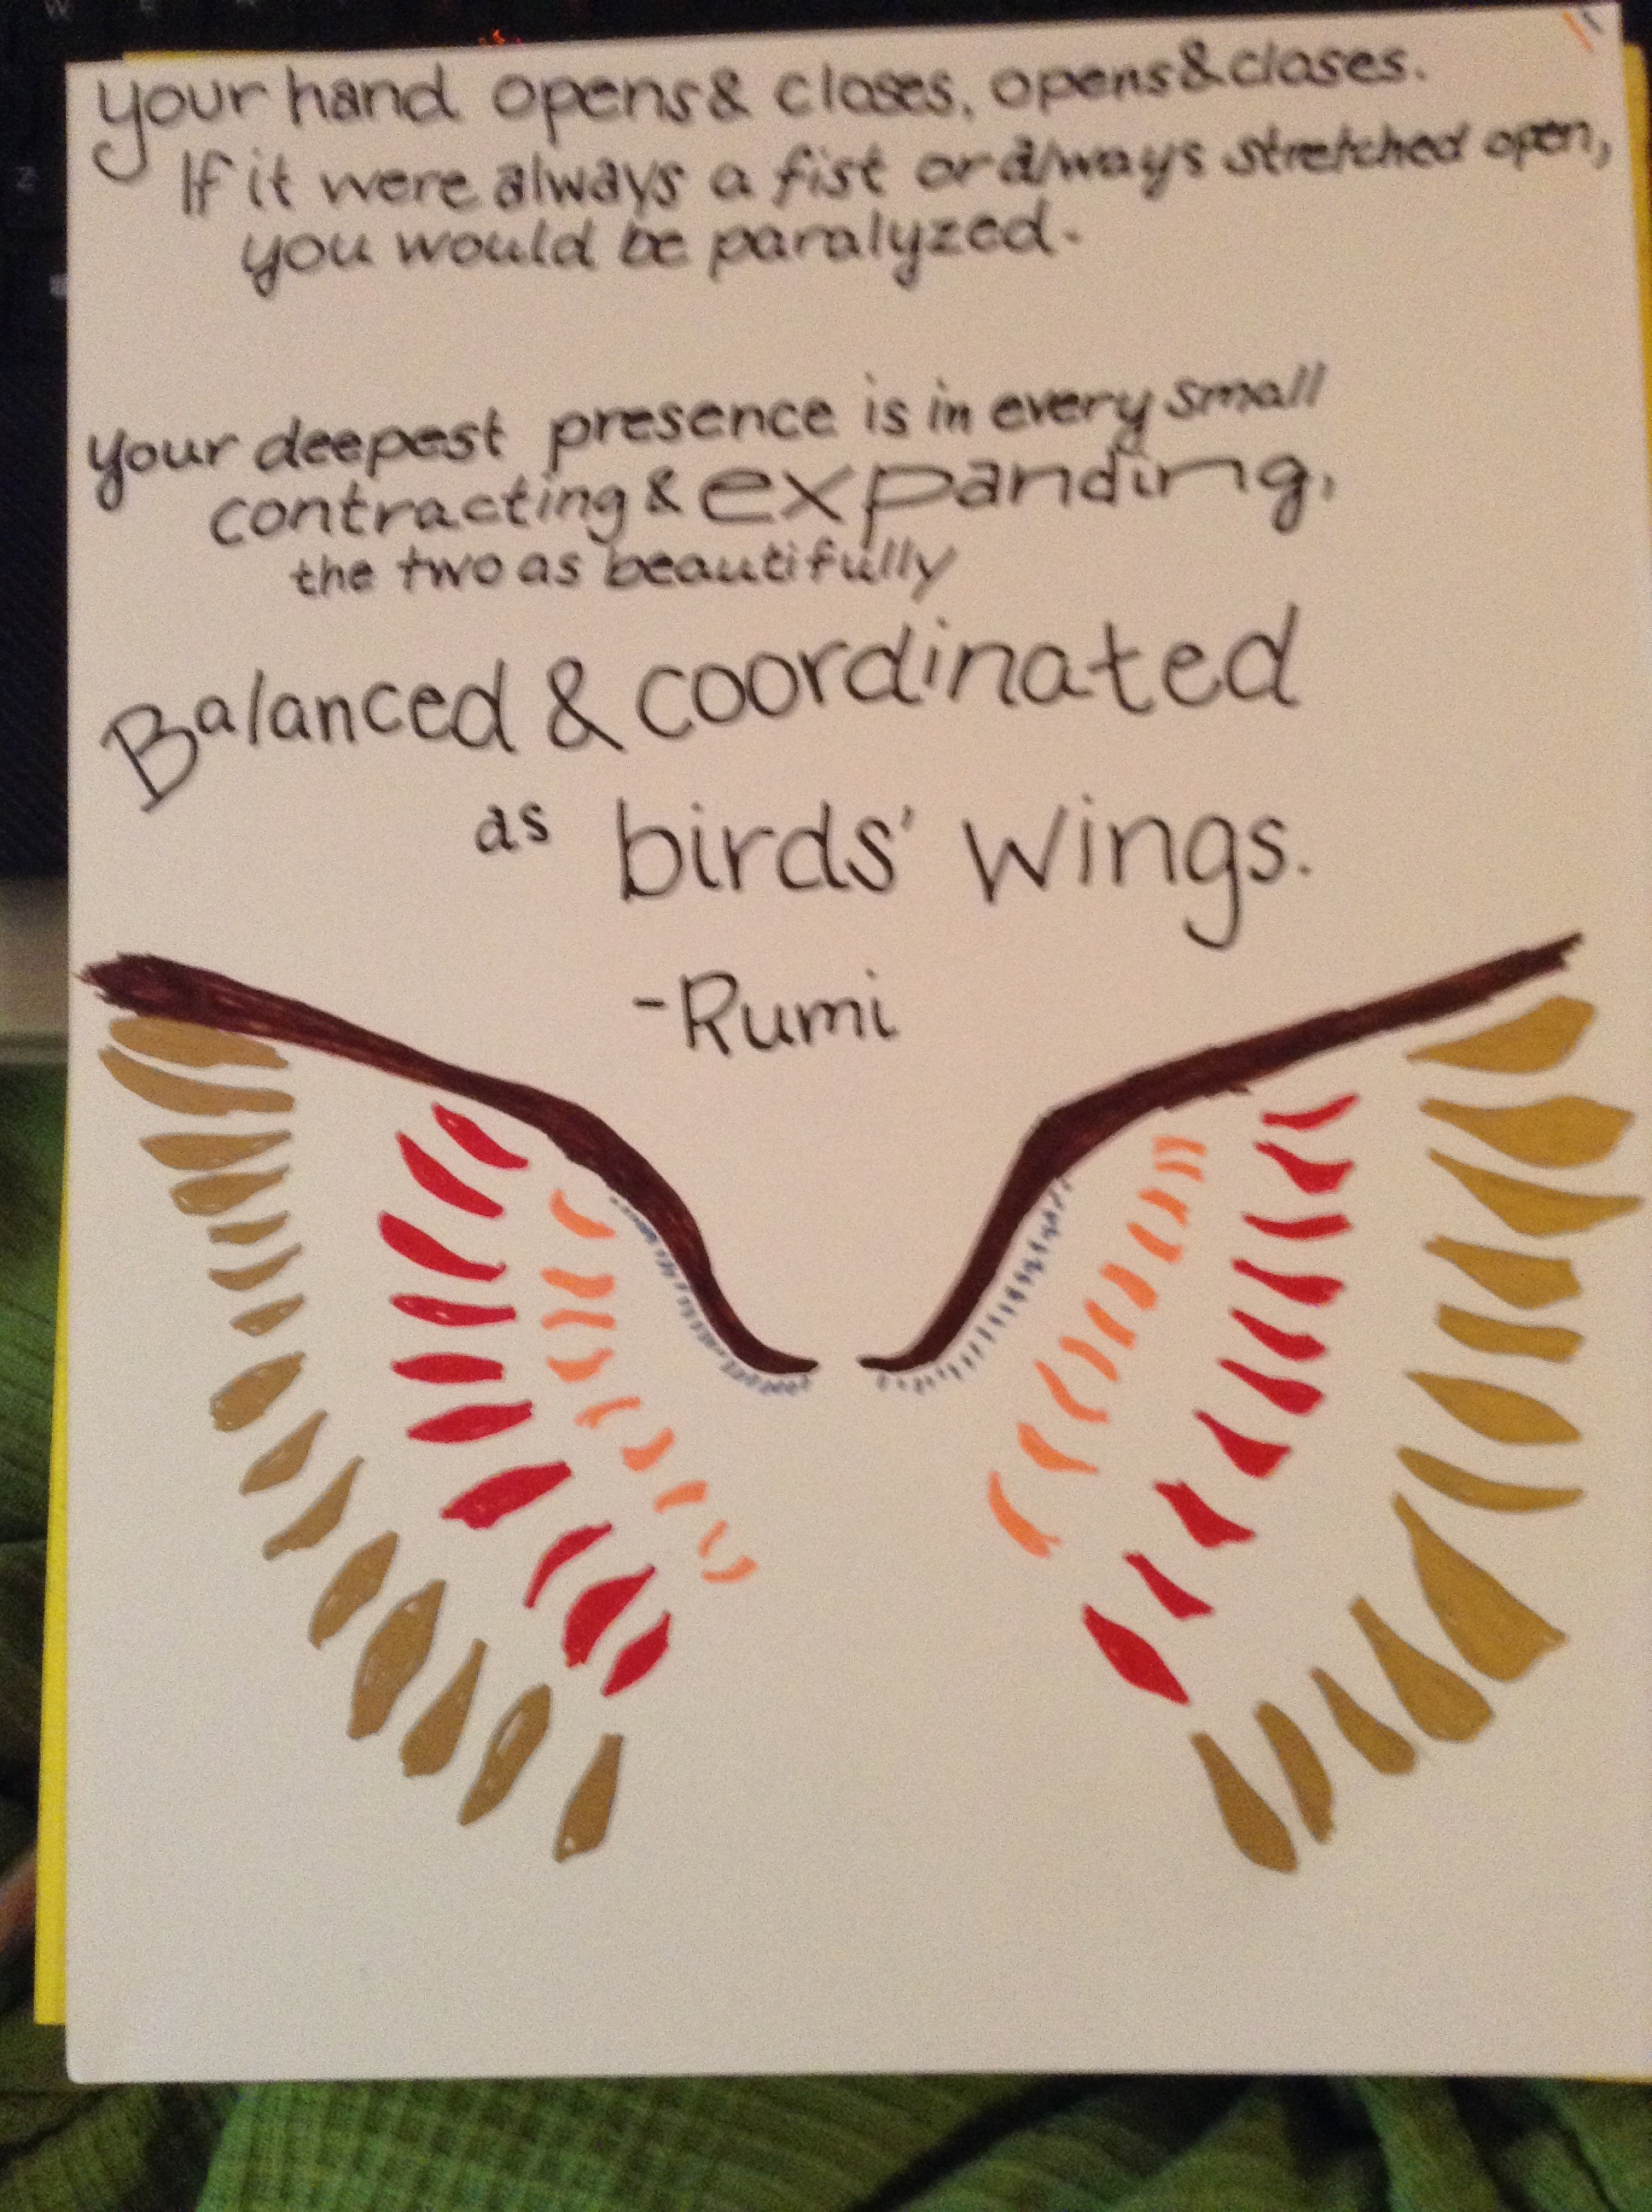 your hand opens & closes, opens & closes.
If it were always a fist or always stretched open,
you would be paralyzed.
your deepest presence is in every small
contracting & expanding,
the two as beautifully
Balanced & coordinated
as birds' wings.
-Rumi